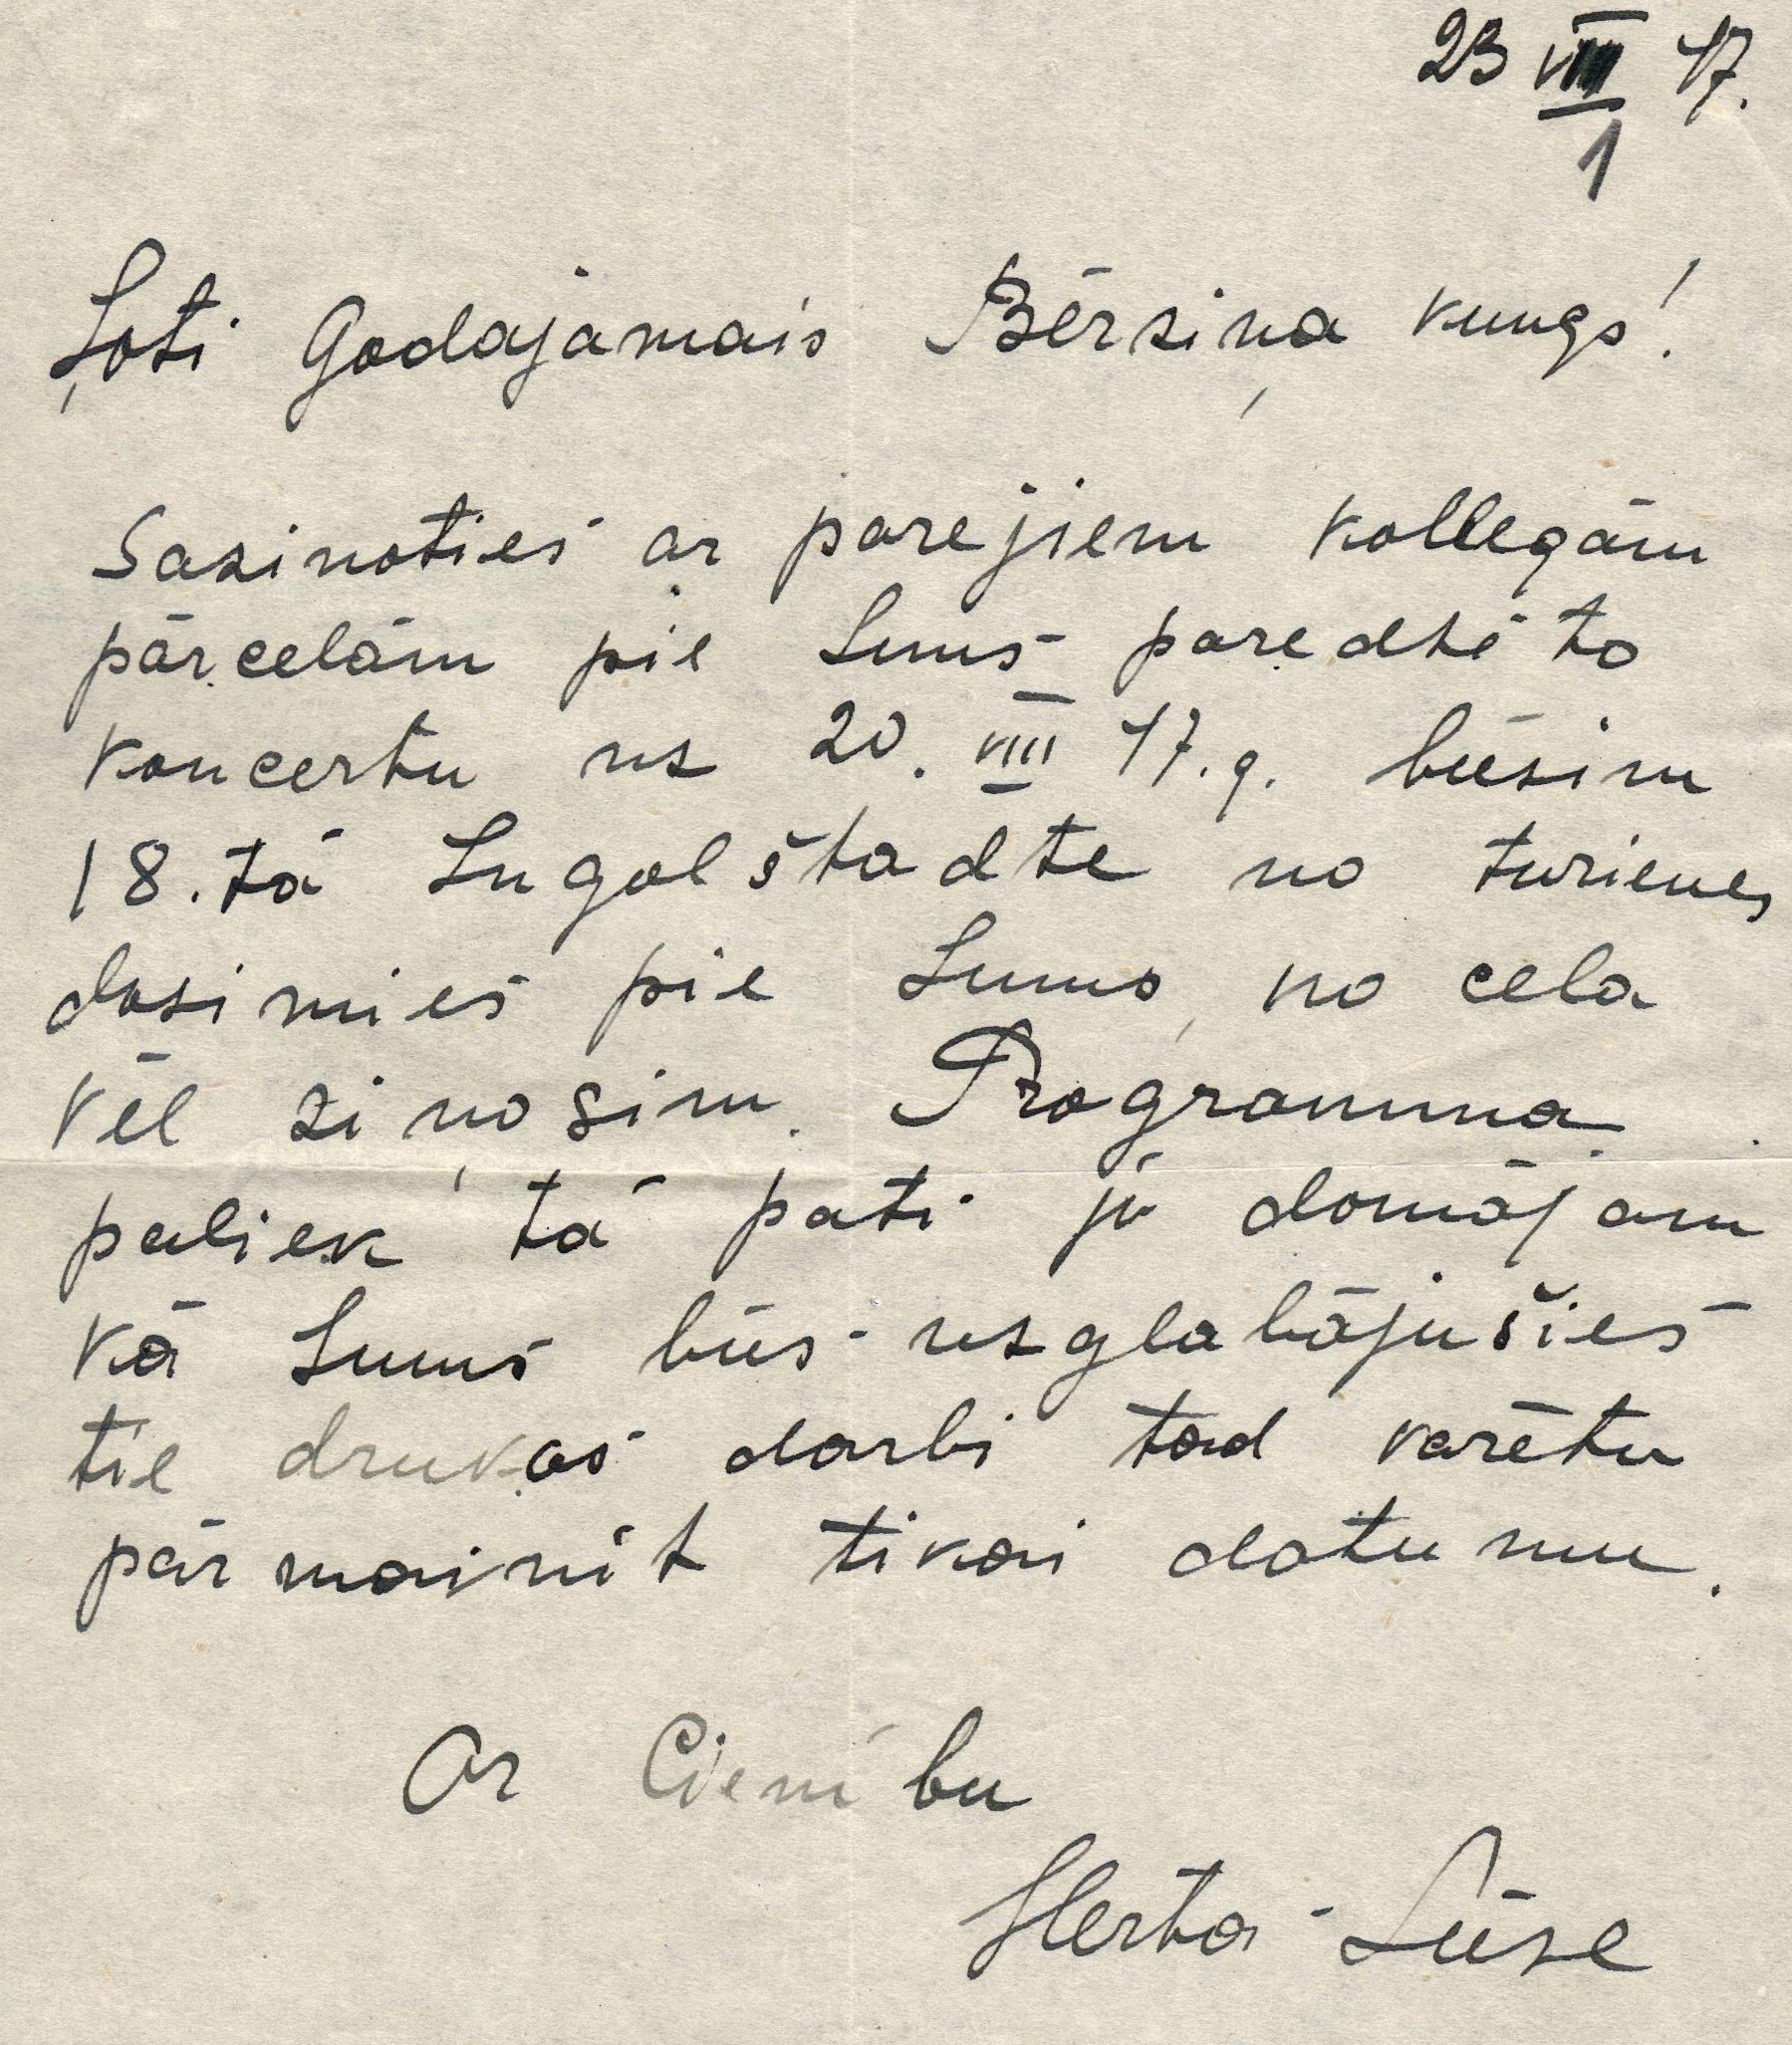 23 VIII 47.
1
Ļoti Godajamais Bērziņa kungs!
Sazinoties ar parejiem kollegām
pārcelām pie Jums paredzēto
koncertu uz 20. VIII 47.g. būsim
18.tā Ingolštadte no turienes
dosimies pie Jums, no cela
vēl ziņosim. Programma
paliek tā pati jo domājam
kā Jums būs uzglabājušies
tie drukas darbi tad varētu
pārmainit tikai datumu.
Ar Cienību
Herta Lūse